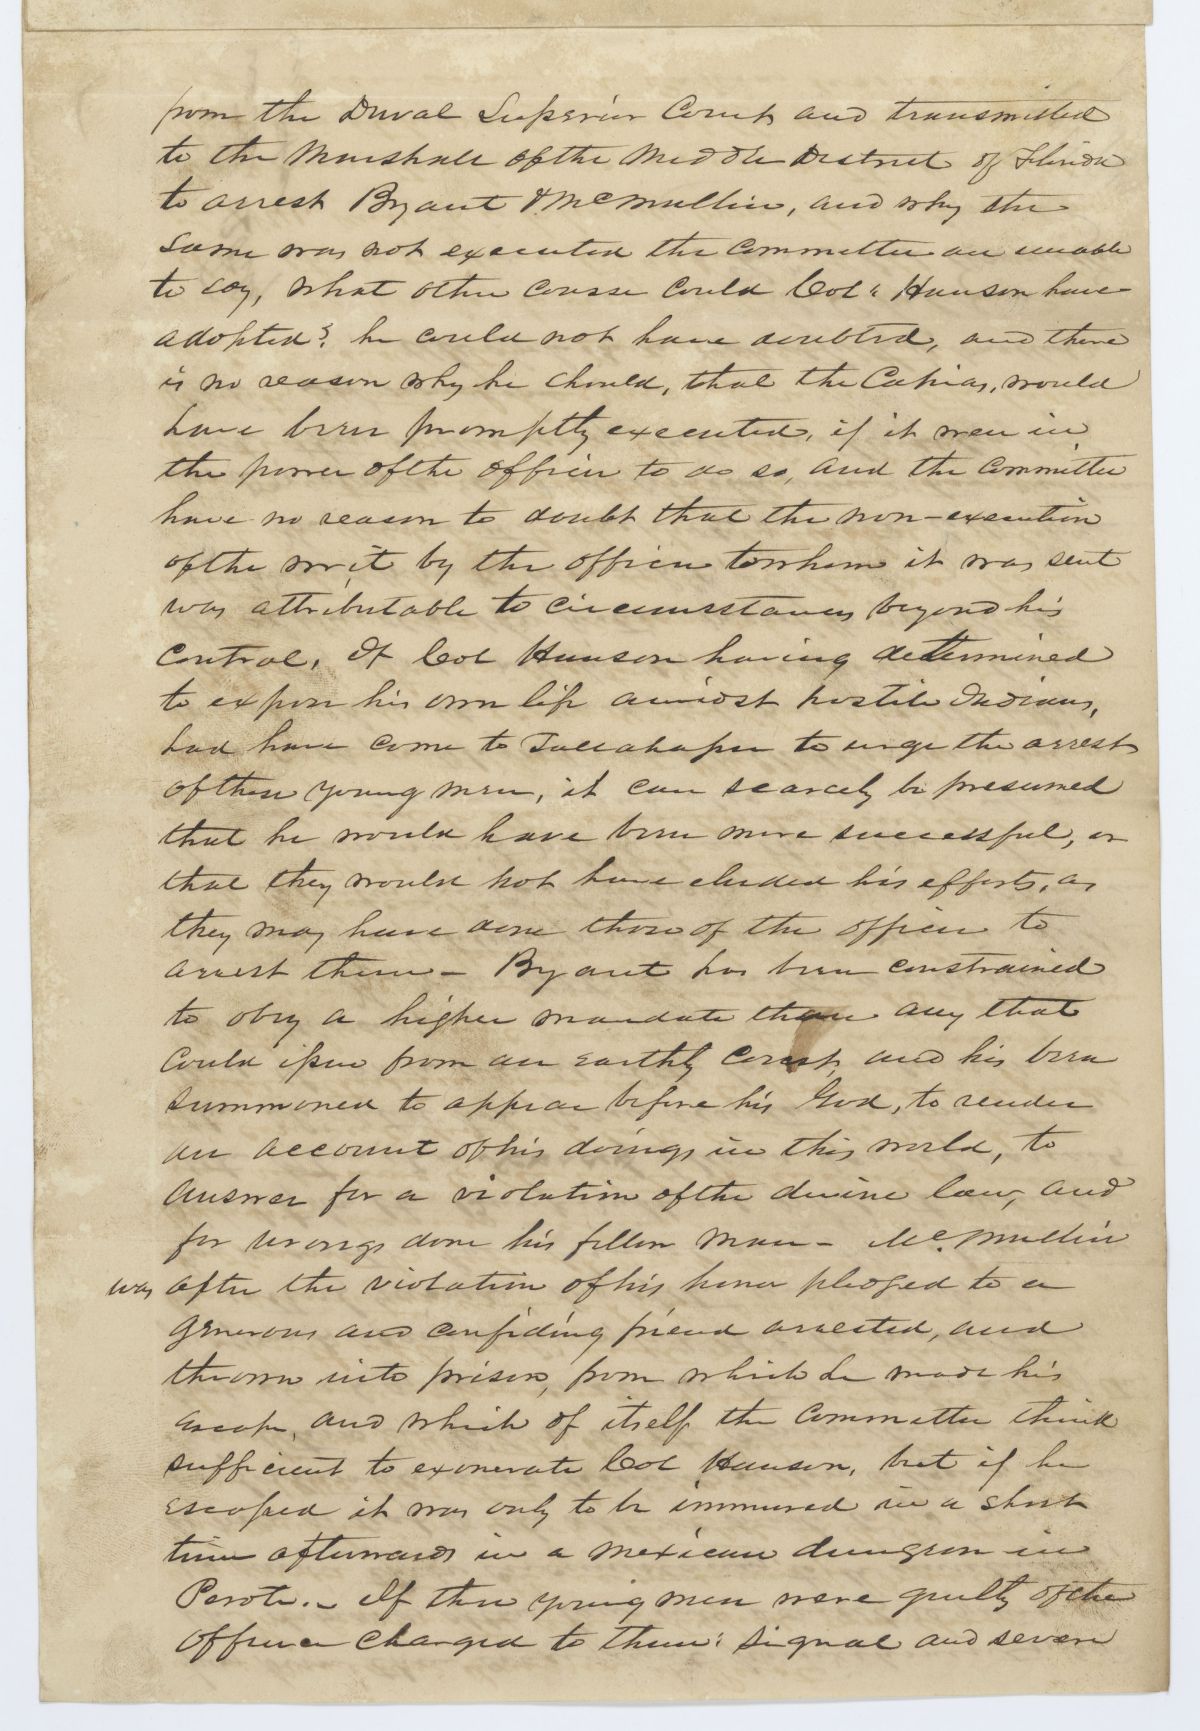 from the Duval Superior Court and transmitted
to the Marshall of the Middle District of Florida
to arrest Byant & McMullin, and why the
same was not executed the Committee are unable
to say, what other course could Col. Hanson have
adopted? he could not have doubted, and there
is no reason why he should, that the Capias, would
have been promptly executed, if it were in
the power of the officer to do so, and the Committee
have no reason to doubt that the non-execution
of the writ by the officer to whom it was sent
was attributable to circumstances beyond his
control, If Col Hanson having determined
to expose his own life amidst hostile Indians,
had have come to Tallahassee to urge the arrest
of these young men, it can scarcely be presumed
that he would have been more successful, or
that they would not have eluded his efforts, as
they may have done those of the officer to
arrest them - Byant has been constrained
to obey a higher mandate than any that
could issue from an earthly Court, and his been
summoned to appear before his God, to render
an account of his doings in this world, to
answer for a violation of the divine law, and
for wrongs done his fellow man - McMullin
was after the violation of his honor pledged to a
generous and confiding friend arrested, and
thrown into prison, from which he made his
escape, and which of itself the Committee think
sufficient to exonerate Col Hanson, but if he
escaped it was only to be immured in a short
time afterwards in a Mexican dungeon in
Perote. - If these young men were guilty of the
offence charged to them; signal and severe